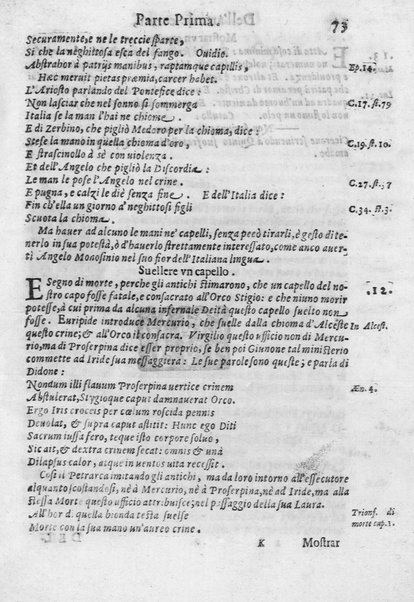 Parte Prima. 73
Securamente, e ne le treccie sparte,
Si che la neghittosa esca del fango. Ouidio.
Abstrahor à patrijs manibus, raptamque capillis, Ep. 14.
Hæc meruit pietas præmia, carcer habet.
L'Ariosto parlando del Pontefice dice:
Non lasciar che nel sonno si sommerga C.17. st.79
Italia se la man l'hai ne chiome.
E di Zerbino, che pigliò Medoro per la chioma, dice:
Stese la mano in quella chioma d'oro, C.19. st.10.
E strascinollo à sè con violenza.
Et dell'Angelo che pigliò la Discordia:
Le man le pose l'Angelo nel crine. C.27. st.37
E pugna, e calzi le diè senza fine. E dell'Italia dice:
Fin ch'ella un giorno d'neghittosi figli C.34. st.3.
Scuota la chioma.
Ma hauer ad alcuno le mani ne' capelli, senza però tirarli, è gesto di te-
nerlo in sua potestà, ò d'hauerlo strettamente interessato, come anco auer-
tì Angelo Monosinio nel suo fior dell'Italiana lingua.
Suellere vn capello.
E Segno di morte, perche gli antichi stimarono, che un capello del no- 12.
stro capo fosse fatale, e consacrato all'Orco Stigio: e che niuno morir
potesse, à cui prima da alcuna infernale Deità questo capello suelto non
fosse. Euripide introduce Mercurio, che suelle dalla chioma d'Alceste In Alcest.
questo crine; & all'Orco il consacra. Virgilio questo officio non di Mercu-
rio, ma di Proserpina dice esser proprio, se ben poi Giunone tal ministerio
commette ad Iride sua messaggiera: Le sue parole sono queste; e parla di
Didone:
Nondum illi flauum Proserpina vertice crinem Æn. 4.
Abstulerat, Stygioque caput damnauerat Orco.
Ergo Iris croceis per cœlum roscida pennis
Deuolat, & supra caput astitit: Hunc ego Diti
Sacrum iussa fero, teque isto corpore soluo,
Sic ait, & dextra crinem secat: omnis & unà
Dilapsus calor, atque in uentos uita recessit.
Così il Petrarca imitando gli antichi, ma da loro intorno all'essecutore
alquanto scostandosi, nè à Mercurio, nè à Proserpina, nè ad Iride, ma alla
stessa Morte questo ufficio attribuisce; nel passaggio della sua Laura.
All'hor di quella bionda testa suelse Trionf. di
Morte con la sua mano un'aureo crine. morte cap.1.
K Mostrar